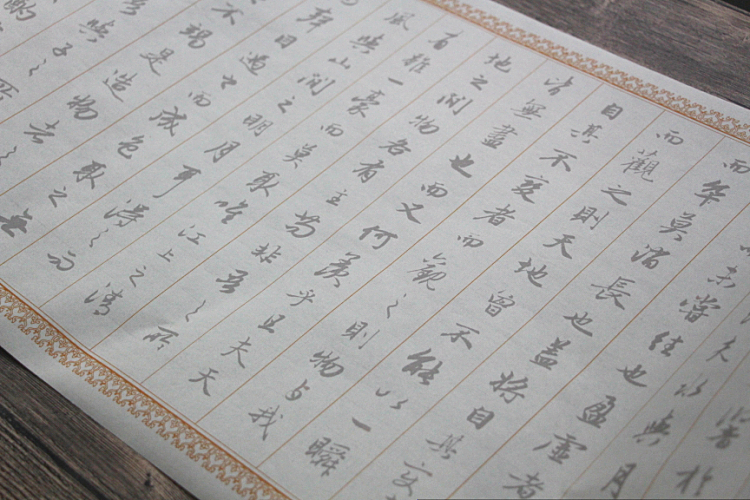 夫水與月
未嘗往也盈虛者
而卒莫消長也蓋將自其變
而觀之則天地曾不能以一瞬
自其不變者而觀之則物與我
皆無盡也而又何羨乎且夫天
地之間物各有主苟非吾之所
有雖一豪而莫取唯江上之清
風與山間之明月耳得之而
聲目遇之而成色取之無
不竭是造物者之
與子之所